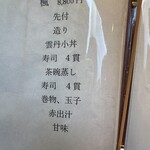 楓 8,800円
先付
造り
雲丹小丼
寿司 4貫
茶碗蒸し
寿司 4貫
巻物、玉子
赤出汁
甘味